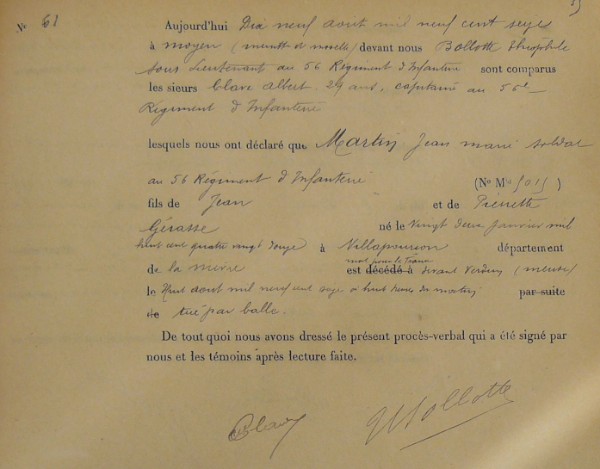 N° 61
Aujourd'hui Dix neuf aout mil neuf cent seize
à moyen (meurthe et moselle) devant nous Bollotte Théophile
sous Lieutenant au 56 Régiment d'Infanterie sont comparus
les sieurs Clave Albert 29 ans, capitaine au 55e
Régiment d'Infanterie
lesquels nous ont déclaré que Martin Jean marie soldat
au 56 Régiment d'Infanterie (No Mle 5015)
fils de Jean et de Pierrette
Gérasse né le Vingt deux Janvier mil
huit cent quatre vingt douze à Villapourçon département
de la nièvre mort pour la France est décédé à devant Verdun (meuse)
le Huit aout mil neuf cent seize à huit heures du matin par suite
de tué par balle.
De tout quoi nous avons dressé le présent procès-verbal qui a été signé par
nous et les témoins après lecture faite.
Clave Bollotte